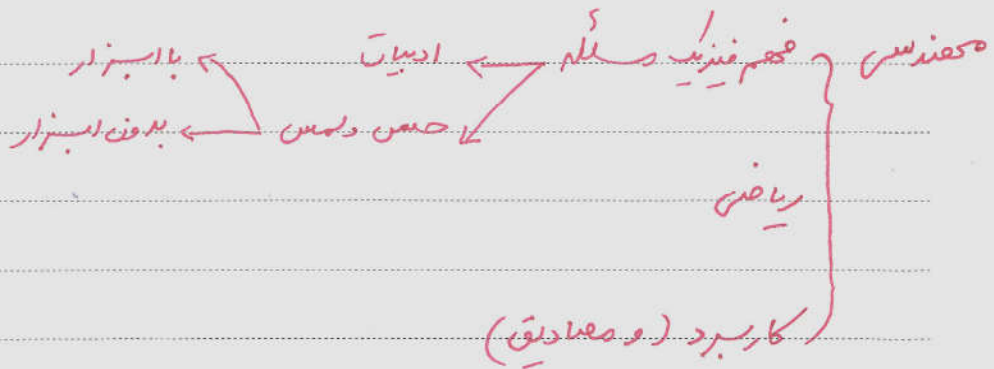 مهندسی فهم فیزیک مسئله ادبیات با ابزار
حس و لمس بدون ابزار
ریاضی
کاربرد (و مصادیق)